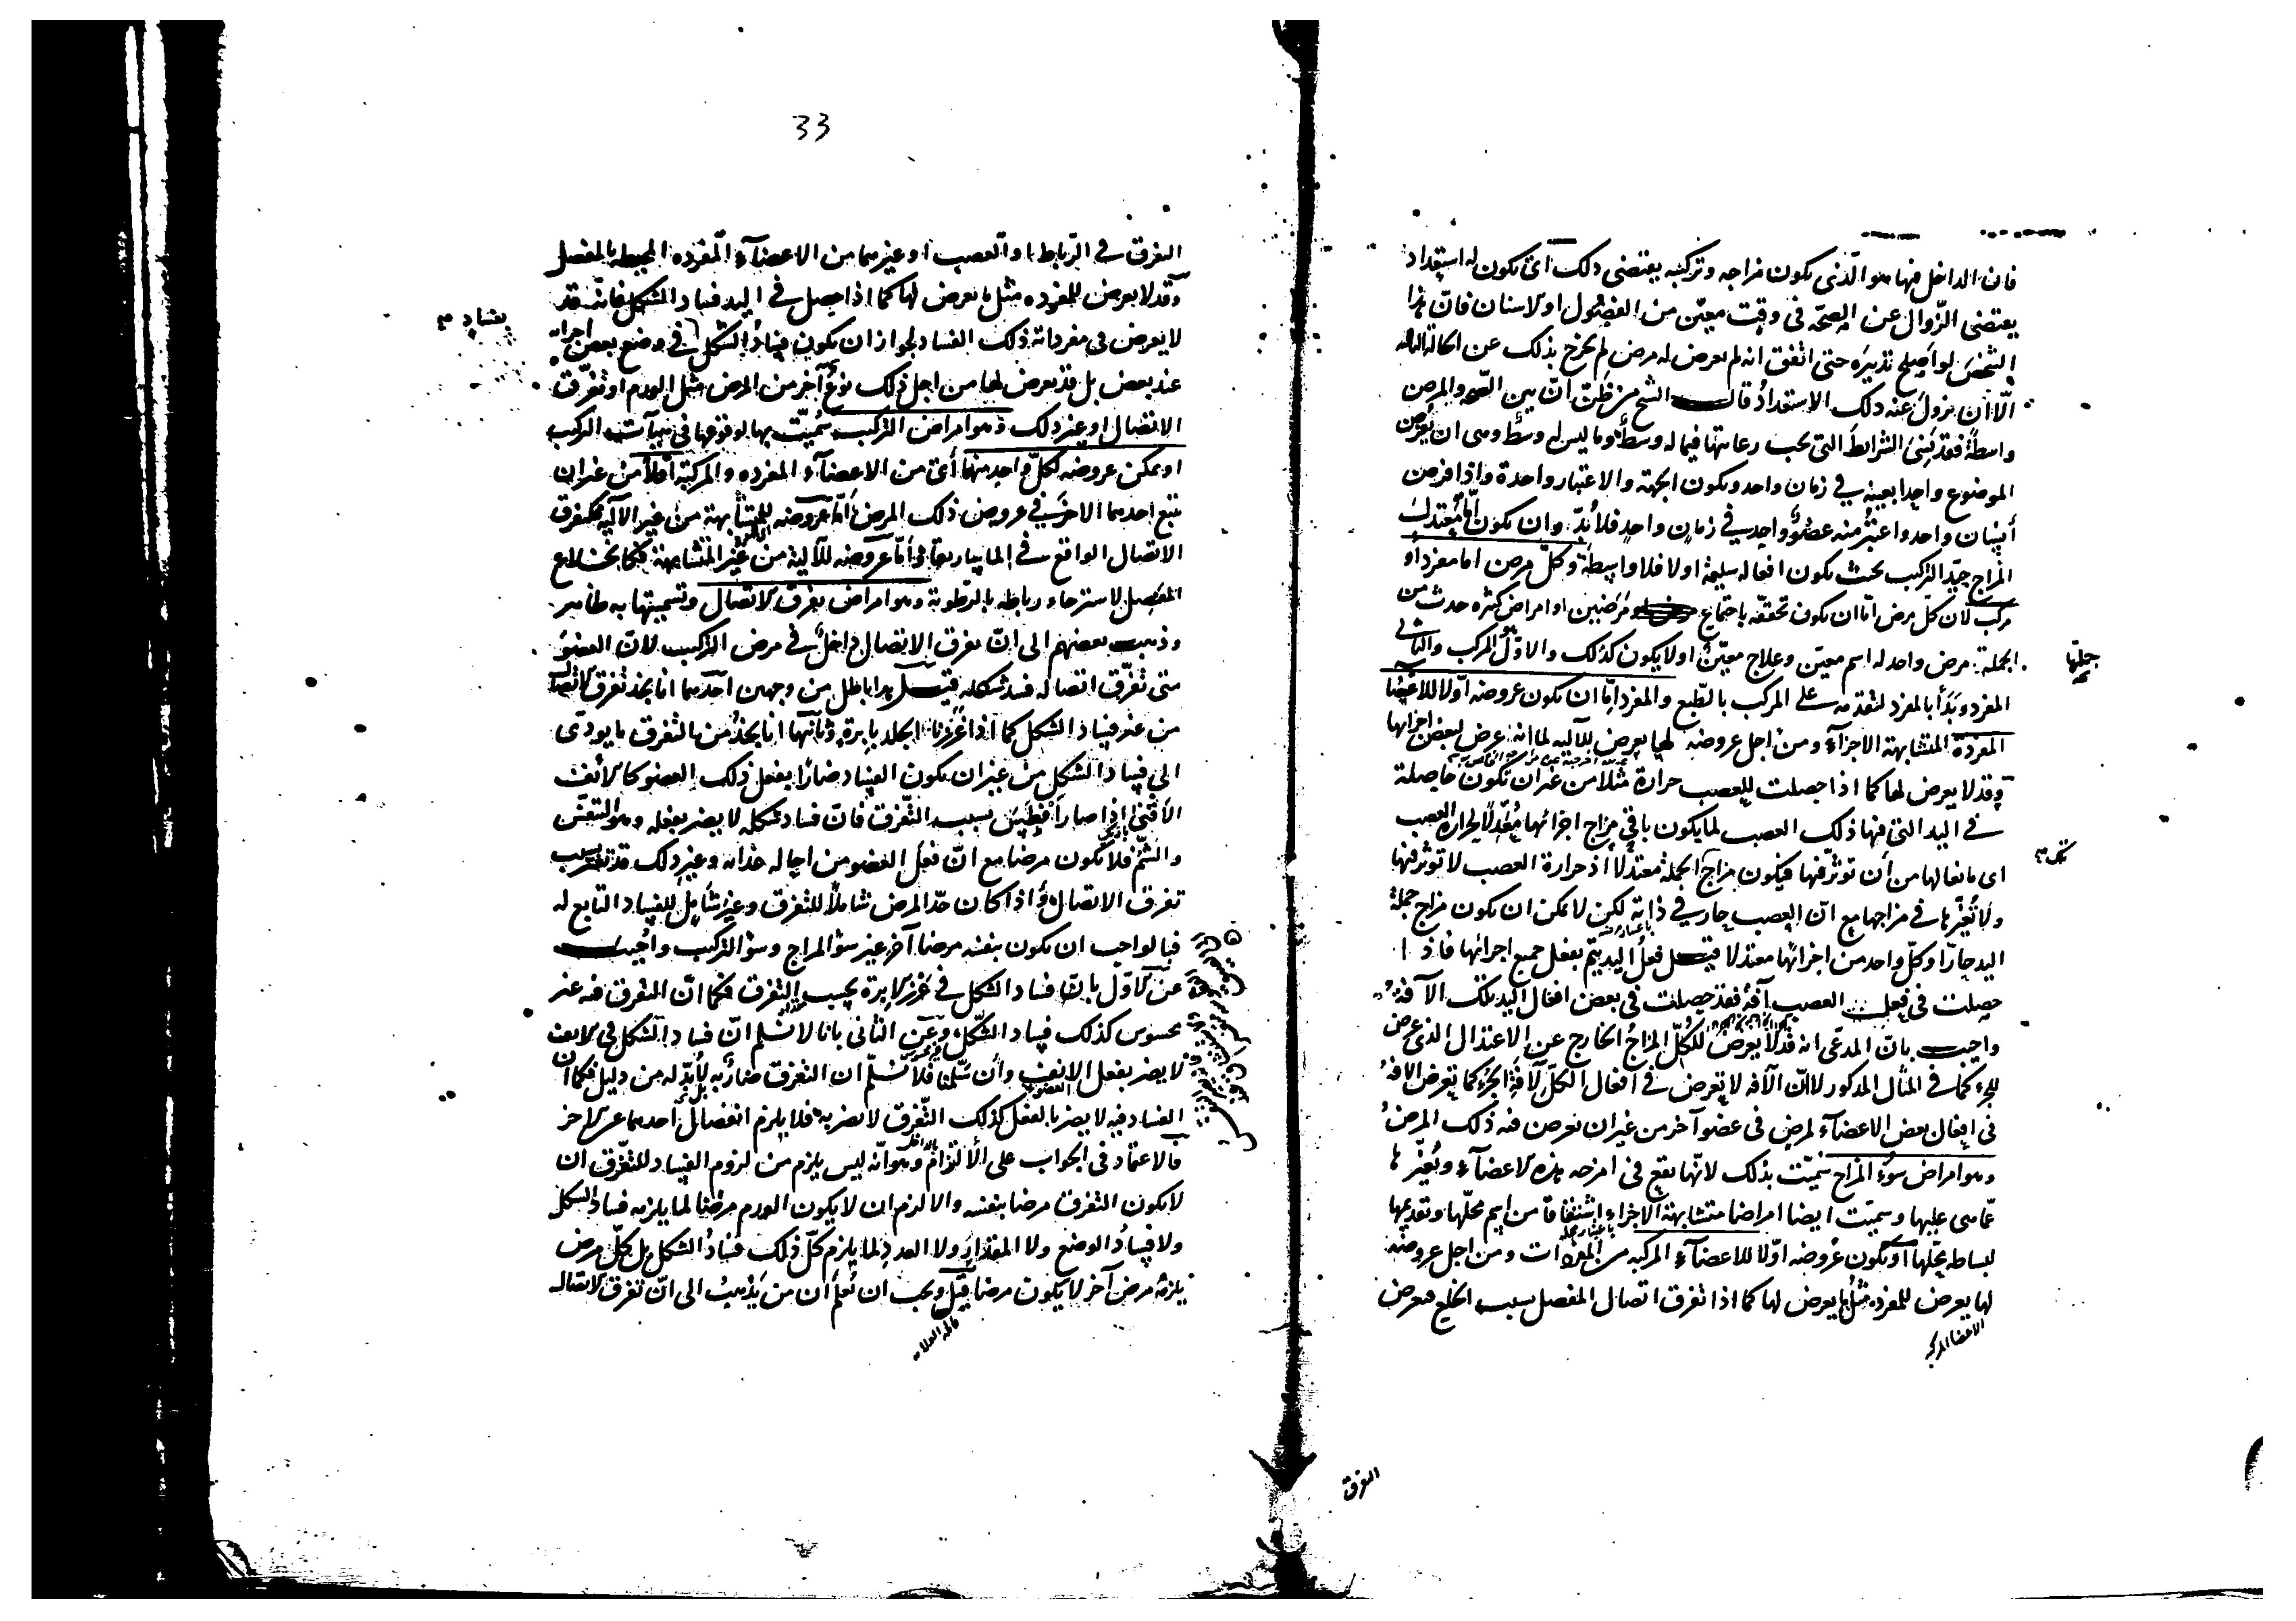 فان الداخل فيها هو الذى يكون مزاجه وتركيبه يقتضى ذلك اى يكون له استعداد
يقتضى الزوال عن الصحة فى وقت معين من الفصول او الاسنان فان هذا
الشخص لو اصلح تدبيره حتى اتفق انه لم يعرض له مرض لم يخرج بذلك عن الحالة الثالثة
الا ان يزول عنه ذلك الاستعداد قال الشيخ من ظن ان بين الصحة والمرض
واسطة فقد نسى الشرائط التى يجب رعايتها فيما له وسط وما ليس له وسط وهى ان يفرض
الموضوع واحدا بعينه فى زمان واحد ويكون الجهة والاعتبار واحدة واذا فرض
انسان واحد واعتبر منه عضو واحد فى زمان واحد فلا بد وان يكون اما معتدل
المزاج جيد التركيب بحيث يكون افعاله سليمة اولا فلا واسطة وكل مرض اما مفرد او
مركب لان كل مرض اما ان يكون تحققه باجتماع مرضين او امراض كثيرة حدث من
جملتها
الجملة مرض واحد له اسم معين وعلاج معين اولا يكون كذلك والاول هو المركب والثانى
المفرد وبدأ بالمفرد لتقدمه على المركب بالطبع والمفرد اما ان يكون عروضه اولا للاعضا
المفردة المتشابهة الاجزاء ومن اجل عروضه لها يعرض للآلية لما انه عرض لبعض اجزائها
وقد لا يعرض لها كما اذا حصلت للعصب حرارة مثلا من غير ان تكون حاصلة
فى اليد التى فيها ذلك العصب لما يكون باقى مزاج اجزائها معدلا لحرارة العصب
اى مانعا لها من ان تؤثر فيها فيكون مزاج الجملة معتدلا اذ حرارة العصب لا تؤثر فيها
ولا تغيرها فى مزاجها مع ان العصب حار فى ذاته لكن لا يمكن ان يكون مزاج جملة
اليد حارا وكل واحد من اجزائها معتدلا قيل فعل اليد يتم بفعل جميع اجزائها فاذا
حصلت فى فعل العصب آفة فقد حصلت فى بعض افعال اليد تلك الآفة
واجيب بان المدعى انه قد لا يعرض للكل المزاج الخارج عن الاعتدال الذى عرض
للجزء كما فى المثال المذكور لا ان الآفة لا تعرض فى افعال الكل لآفة الجزء كما تعرض الافة
فى افعال بعض الاعضاء لمرض فى عضو آخر من غير ان يعرض فيه ذلك المرض
وهو امراض سوء المزاج سميت بذلك لانها تقع فى امزجة هذه الاعضاء وتغيرها
عما هى عليها وسميت ايضا امراضا متشابهة الاجزاء اشتقاقا من اسم محلها وتقديمها
لبساطة محلها او يكون عروضه اولا للاعضاء المركبة من المفردات ومن اجل عروضه
لها يعرض للمفردة مثل ما يعرض لها كما اذا تفرق اتصال المفصل بسبب الخلع فعرض
الاعضا المركبة
التفرق
33
التفرق فى الرباط او العصب او غيرهما من الاعضاء المفردة المحيطة بالمفصل
وقد لا يعرض للمفردة مثل ما يعرض لها كما اذا حصل فى اليد فساد الشكل فانه قد
لا يعرض فى مفرداته ذلك الفساد لجواز ان يكون فساد الشكل فى وضع بعض اجزائه
عند بعض بل قد يعرض لها من اجل ذلك نوع آخر من المرض مثل الورم او تفرق
الاتصال او غير ذلك وهو امراض التركيب سميت بها لوقوعها فى هيآت التركيب
او يمكن عروضه لكل واحد منها اى من الاعضاء المفردة والمركبة اولا من غير ان
يتبع احدهما الاخر فى عروض ذلك المرض اما عروضه للمتشابهة من غير الآلية فكتفرق
الاتصال الواقع فى الماساريقا واما عروضه للآلية من غير المتشابهة فكانخلاع
المفصل لاسترخاء رباطه بالرطوبة وهو امراض تفرق الاتصال وتسميتها به ظاهر
وذهب بعضهم الى ان تفرق الاتصال داخل فى مرض التركيب لان العضو
متى تفرق اتصاله فسد شكله قيل هذا باطل من وجهين احدهما انا نجد تفرق الاتصال
من غير فساد الشكل كما اذا غرزنا الجلد بابرة وثانيهما انا نجد من التفرق ما يودى
الى فساد الشكل من غير ان يكون الفساد ضارا بفعل ذلك العضو كالانف
الاقنى اذا صار افطس بسبب التفرق فان فساد شكله لا يضر بفعله وهو التنفس
والشم فلا يكون مرضا مع ان فعل العضو من احالة غذائه وغير ذلك قد تضرر بسبب
تفرق الاتصال واذا كان حد المرض شاملا للتفرق وغير شامل للفساد التابع له
فبالواجب ان يكون بنفسه مرضا آخر غير سوء المزاج وسوء التركيب واجيب
عن الاول بان فساد الشكل فى غرز الابرة بحسب التفرق فكما ان التفرق فيه غير
محسوس كذلك فساد الشكل وعن الثانى بانا لا نسلم ان فساد الشكل فى الانف
لا يضر بفعل الانف وان سلمنا فلا نسلم ان التفرق ضار به لابد له من دليل فكما ان
الفساد فيه لا يضر بالفعل كذلك التفرق لا يضر به فلا يلزم انفصال احدهما عن الاخر
فالاعتماد فى الجواب على الالتزام وهو انه ليس يلزم من لزوم الفساد للتفرق ان
لا يكون التفرق مرضا بنفسه والا لزم ان لا يكون الورم مرضا لما يلزمه فساد الشكل
ولا فساد الوضع ولا المقدار ولا العدد لما يلزم كل ذلك فساد الشكل بل كل مرض
يلزمه مرض آخر لا يكون مرضا قيل ويجب ان تعلم ان من يذهب الى ان تفرق الاتصال
قاله العلامة